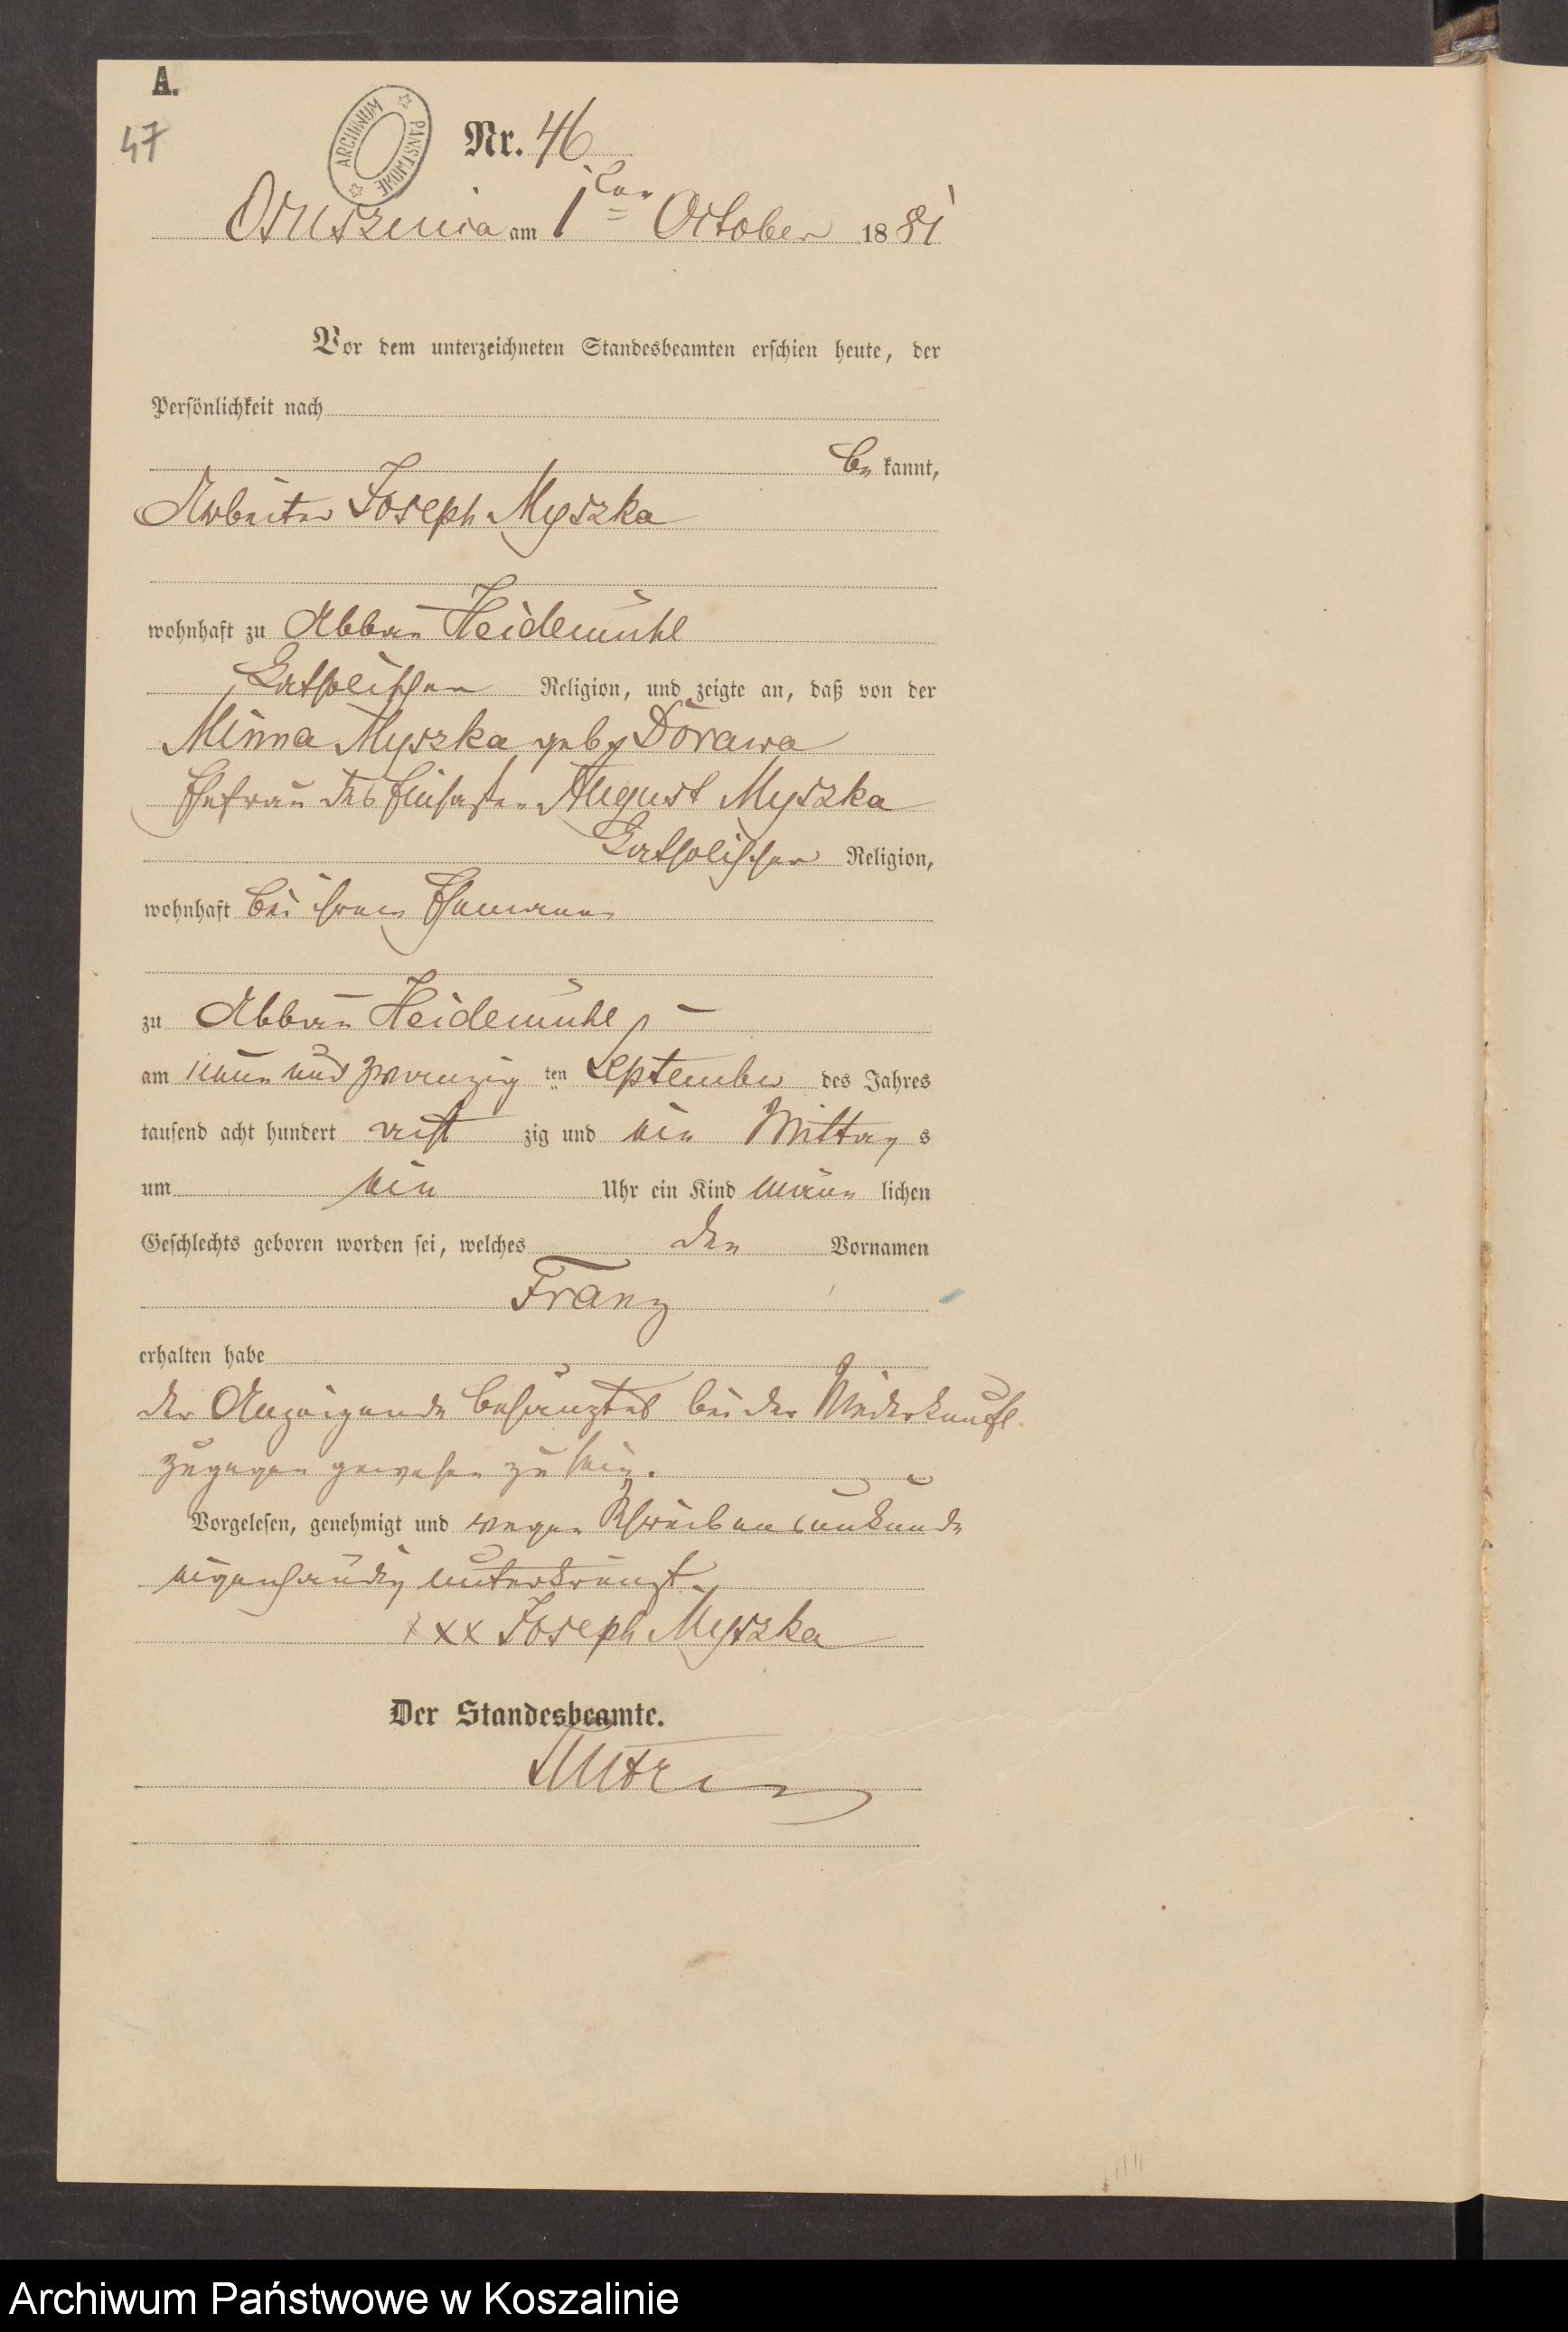 A.
47
ARCHIWUM PAŃSTWOWE
Nr. 46
Ossuszenica am 1ten October 1881
Vor dem unterzeichneten Standesbeamten erschien heute, der
Persönlichkeit nach
be kannt,
Arbeiter Joseph Myszka
wohnhaft zu Abbau Heidemühl
Katholischen Religion, und zeigte an, daß von der
Minna Myszka geb. Dorawa
Ehefrau des Einsassen August Myszka
Katholischer Religion,
wohnhaft bei ihrem Ehemann
zu Abbau Heidemühl
am neun und zwanzig ten September des Jahres
tausend acht hundert acht zig und ein Mittag s
um ein Uhr ein Kind männ lichen
Geschlechts geboren worden sei, welches den Vornamen
Franz
erhalten habe
der Anzeigende bei der Niederkunft
zugegen gewesen zu sein.
Vorgelesen, genehmigt und wegen Schreibensunkunde
eigenhändig unterkreuzt
xxx Joseph Myszka
Der Standesbeamte.
Archiwum Państwowe w Koszalinie